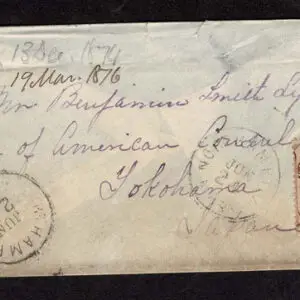 13 Dec. 1874
19 Mar. 1876
Benjamin Smith
of American Consul
Yokohama
Japan
HAMA
JUN
2
JUN
2